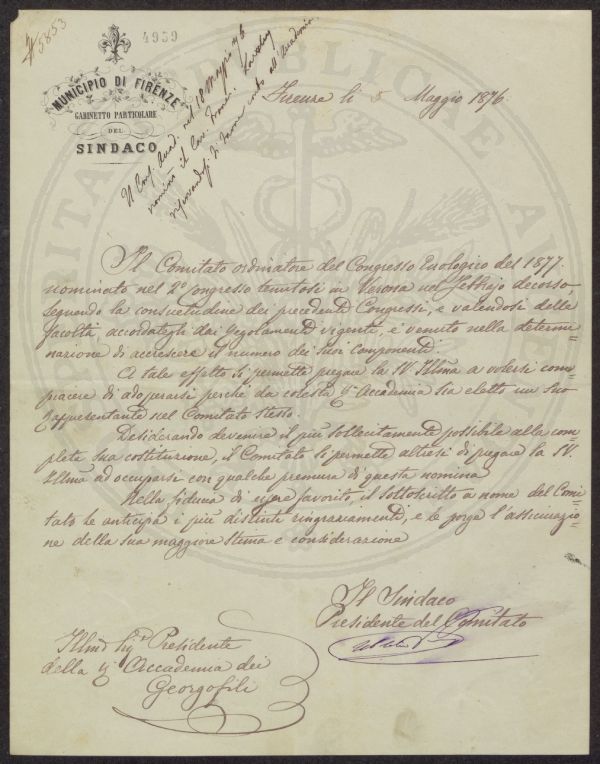 #5853
4939
MUNICIPIO DI FIRENZE
GABINETTO PARTICOLARE
DEL
SINDACO
Il Cons. Accad. nel 18 Maggio 76
nomina il Cav. Prone.
riferendosi di darne conto all'Accademia.
Firenze li 5 Maggio 1876.
Il Comitato ordinatore del Congresso Enologico del 1877.
nominato nel 2° Congresso tenutosi in Verona nel Febbrajo decorso
seguendo la consuetudine dei precedenti Congressi, e valendosi delle
facoltà accordategli dai regolamenti vigenti, è venuto nella determi=
nazione di accrescere il numero dei suoi componenti.
A tale effetto si permette pregare la SV. Illma a volersi com=
piacere di adoperarsi perchè da codesta R. Accademia sia eletto un suo
rappresentante nel Comitato stesso.
Desiderando devenire il più sollecitamente possibile alla com=
pleta sua costituzione, il Comitato si permette altresì di pregare la SV.
Illma ad occuparsi con qualche premura di questa nomina
Nella fiducia di essere favorito, il sottoscritto a nome del Comi=
tato Le anticipa i più distinti ringraziamenti, e le porge l'assicurazio=
ne della sua maggiore stima e considerazione
Il Sindaco
Presidente del Comitato
Illmo Sig. Presidente
della R. Accademia dei
Georgofili